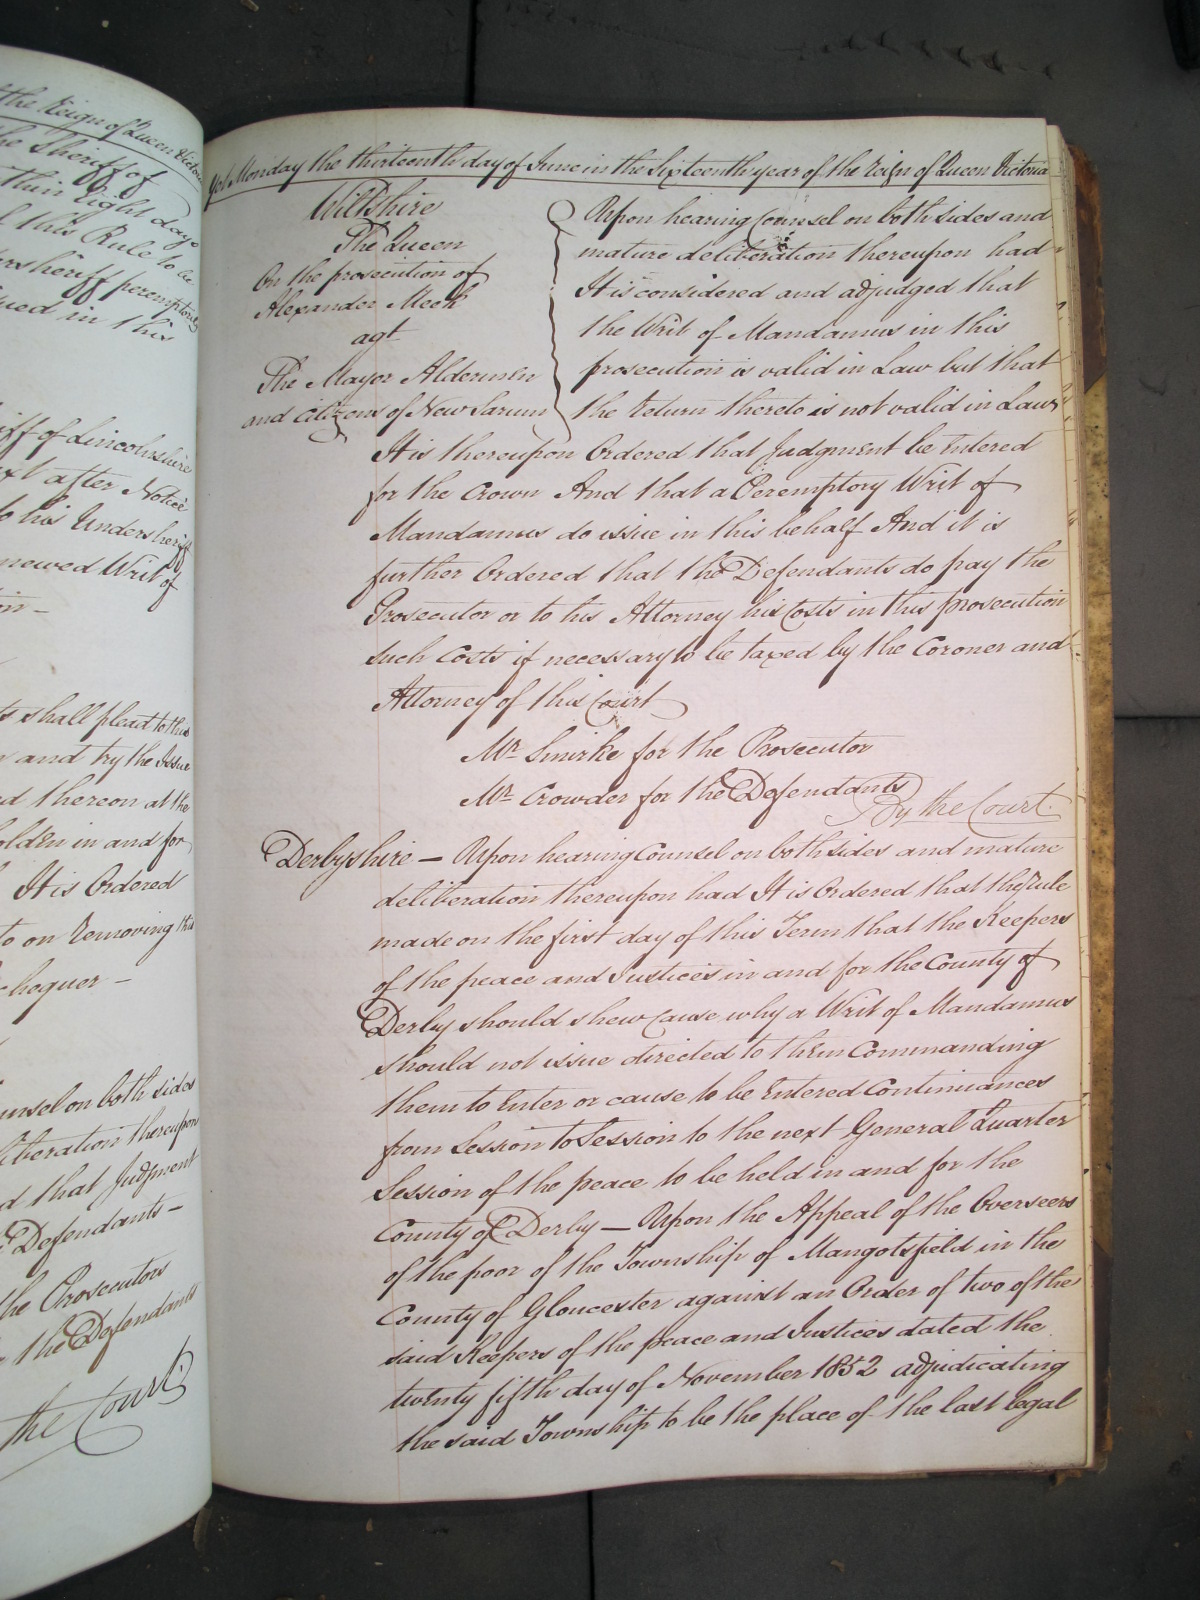 the Reign of Queen Victoria
the Sheriff of
thin Eight days
f this Rule to be
ersheriff peremptorily
ued in this
iff of Lincolnshire
xt after Notice
to his Undersheriff
newed Writ of
on -
ts shall plead to this
and try the Issue
d thereon at the
olden in and for
It is Ordered
to on Removing this
chequer -
unsel on both sides
liberation thereupon
d that Judgment
Defendants -
the Prosecutors
the Defendants
the Court
Yet Monday the thirteenth day of June in the Sixteenth year of the Reign of Queen Victoria
Wiltshire
The Queen
On the prosecution of
Alexander Meek
agt
The Mayor Aldermen
and Citizens of New Sarum
Upon hearing Counsel on both sides and
mature deliberation thereupon had
It is considered and adjudged that
the Writ of Mandamus in this
prosecution is valid in Law but that
the Return thereto is not valid in Law
It is thereupon Ordered that Judgment be Entered
for the Crown And that a Peremptory Writ of
Mandamus do issue in this behalf And it is
further Ordered that the Defendants do pay the
Prosecutor or to his Attorney his Costs in this prosecution
such Costs if necessary to be taxed by the Coroner and
Attorney of this Court
Mr. Smirke for the Prosecutor
Mr. Crowder for the Defendants
By the Court
Derbyshire - Upon hearing Counsel on both sides and mature
deliberation thereupon had It is Ordered that the Rule
made on the first day of this Term that the Keepers
of the peace and Justices in and for the County of
Derby should shew Cause why a Writ of Mandamus
should not issue directed to them Commanding
them to Enter or cause to be Entered Continuances
from Session to Session to the next General Quarter
Session of the peace to be held in and for the
County of Derby - Upon the Appeal of the Overseers
of the poor of the Township of Mangotsfield in the
County of Gloucester against an Order of two of the
said Keepers of the peace and Justices dated the
twenty fifth day of November 1852 adjudicating
the said Township to be the place of the last legal